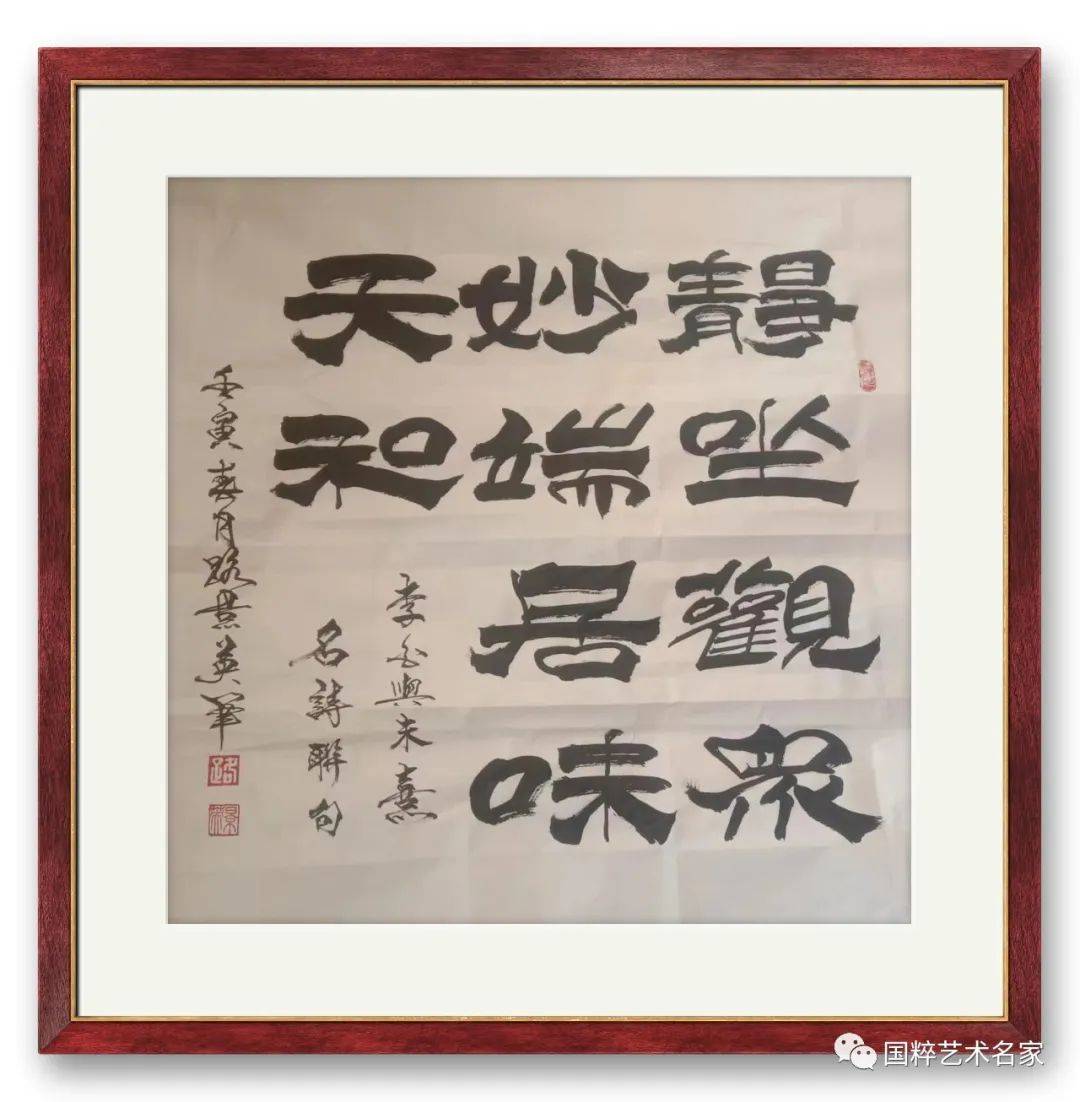 靜坐觀衆
妙端居味
天和
李白與朱熹
名詩聯句
壬寅春月路景英筆
路
国粹艺术名家